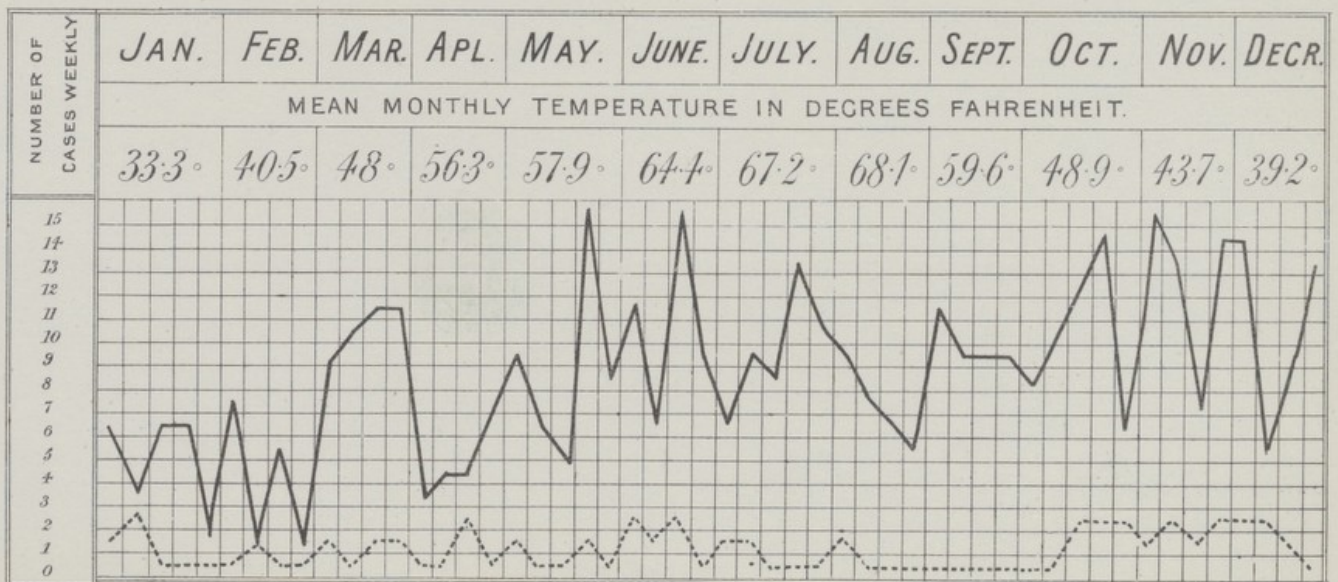 NUMBER OF
CASES WEEKLY
JAN. FEB. MAR. APL. MAY. JUNE. JULY. AUG. SEPT. OCT. NOV. DECR.
MEAN MONTHLY TEMPERATURE IN DEGREES FAHRENHEIT.
33·3° 40·5° 48° 56·3° 57·9° 64·4° 67·2° 68·1° 59·6° 48·9° 43·7° 39·2°
15
14
13
12
11
10
9
8
7
6
5
4
3
2
1
0